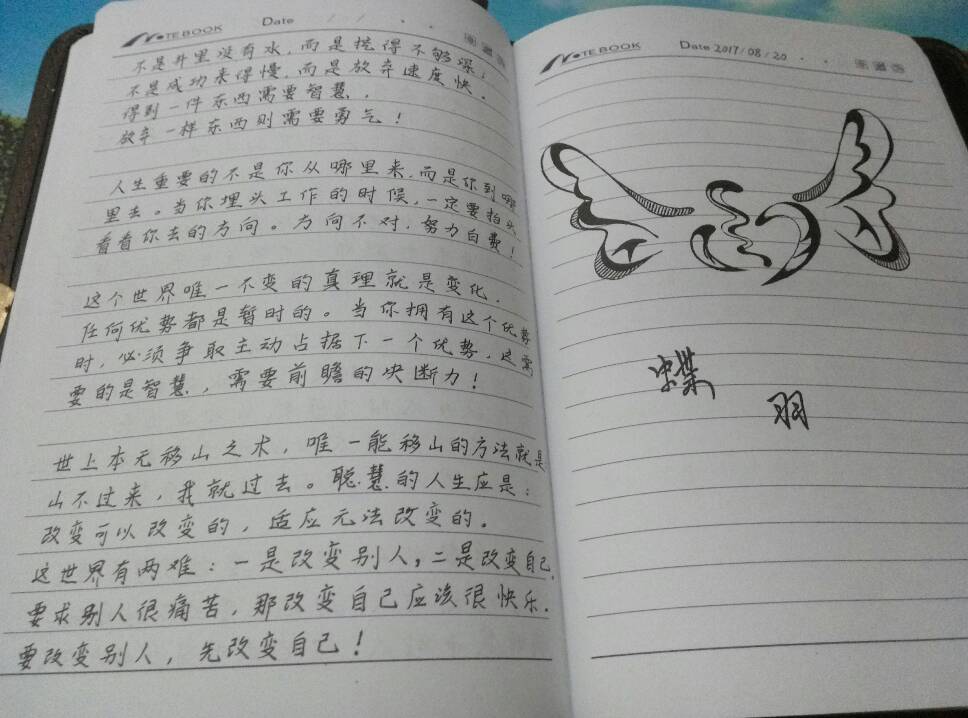 NOTEBOOK Date / /
不是井里没有水，而是挖得不够深；
不是成功来得慢，而是放弃速度快。
得到一件东西需要智慧，
放弃一样东西则需要勇气！
人生重要的不是你从哪里来，而是你到哪
里去。当你埋头工作的时候，一定要抬头
看看你去的方向。方向不对，努力白费！
这个世界唯一不变的真理就是变化，
任何优势都是暂时的。当你拥有这个优势
时，必须争取主动占据下一个优势，这需
要的是智慧，需要前瞻的决断力！
世上本无移山之术，唯一能移山的方法就是
山不过来，我就过去。聪慧的人生应是：
改变可以改变的，适应无法改变的。
这世界有两难：一是改变别人，二是改变自己，
要求别人很痛苦，那改变自己应该很快乐。
要改变别人，先改变自己！
NOTEBOOK Date 2017/08/20
蝶
羽